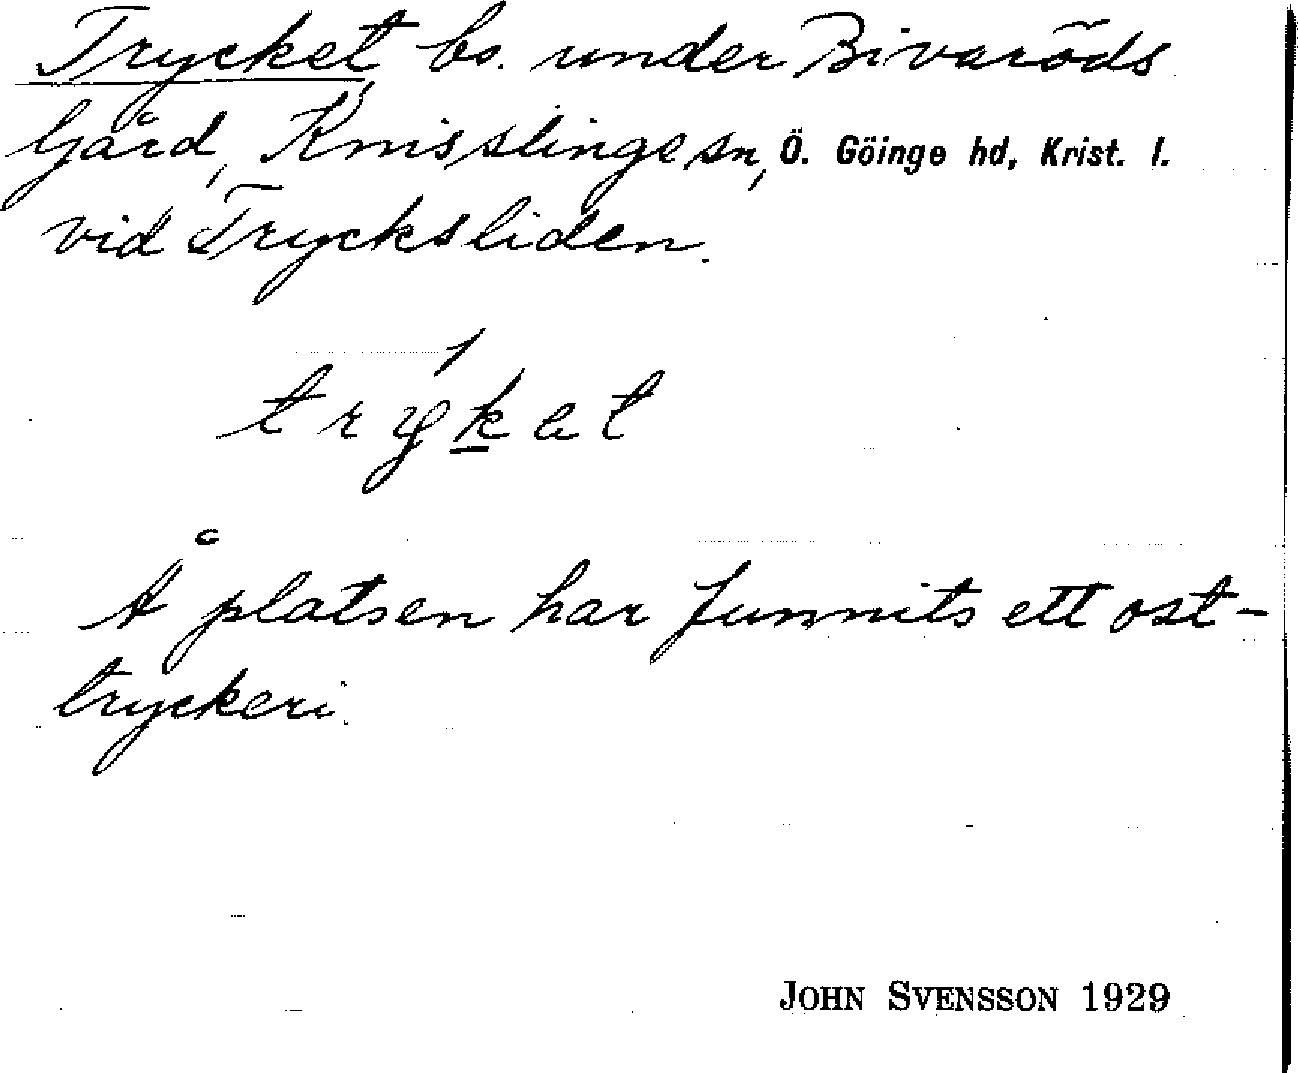 Trycket, bs. under Bivaröds
Gård, Knisslinge sn, Ö. Göinge hd, Krist. l.
vid Trycksliden.
trýket
Å platsen har funnits ett ost-
tryckeri.
JOHN SVENSSON 1929